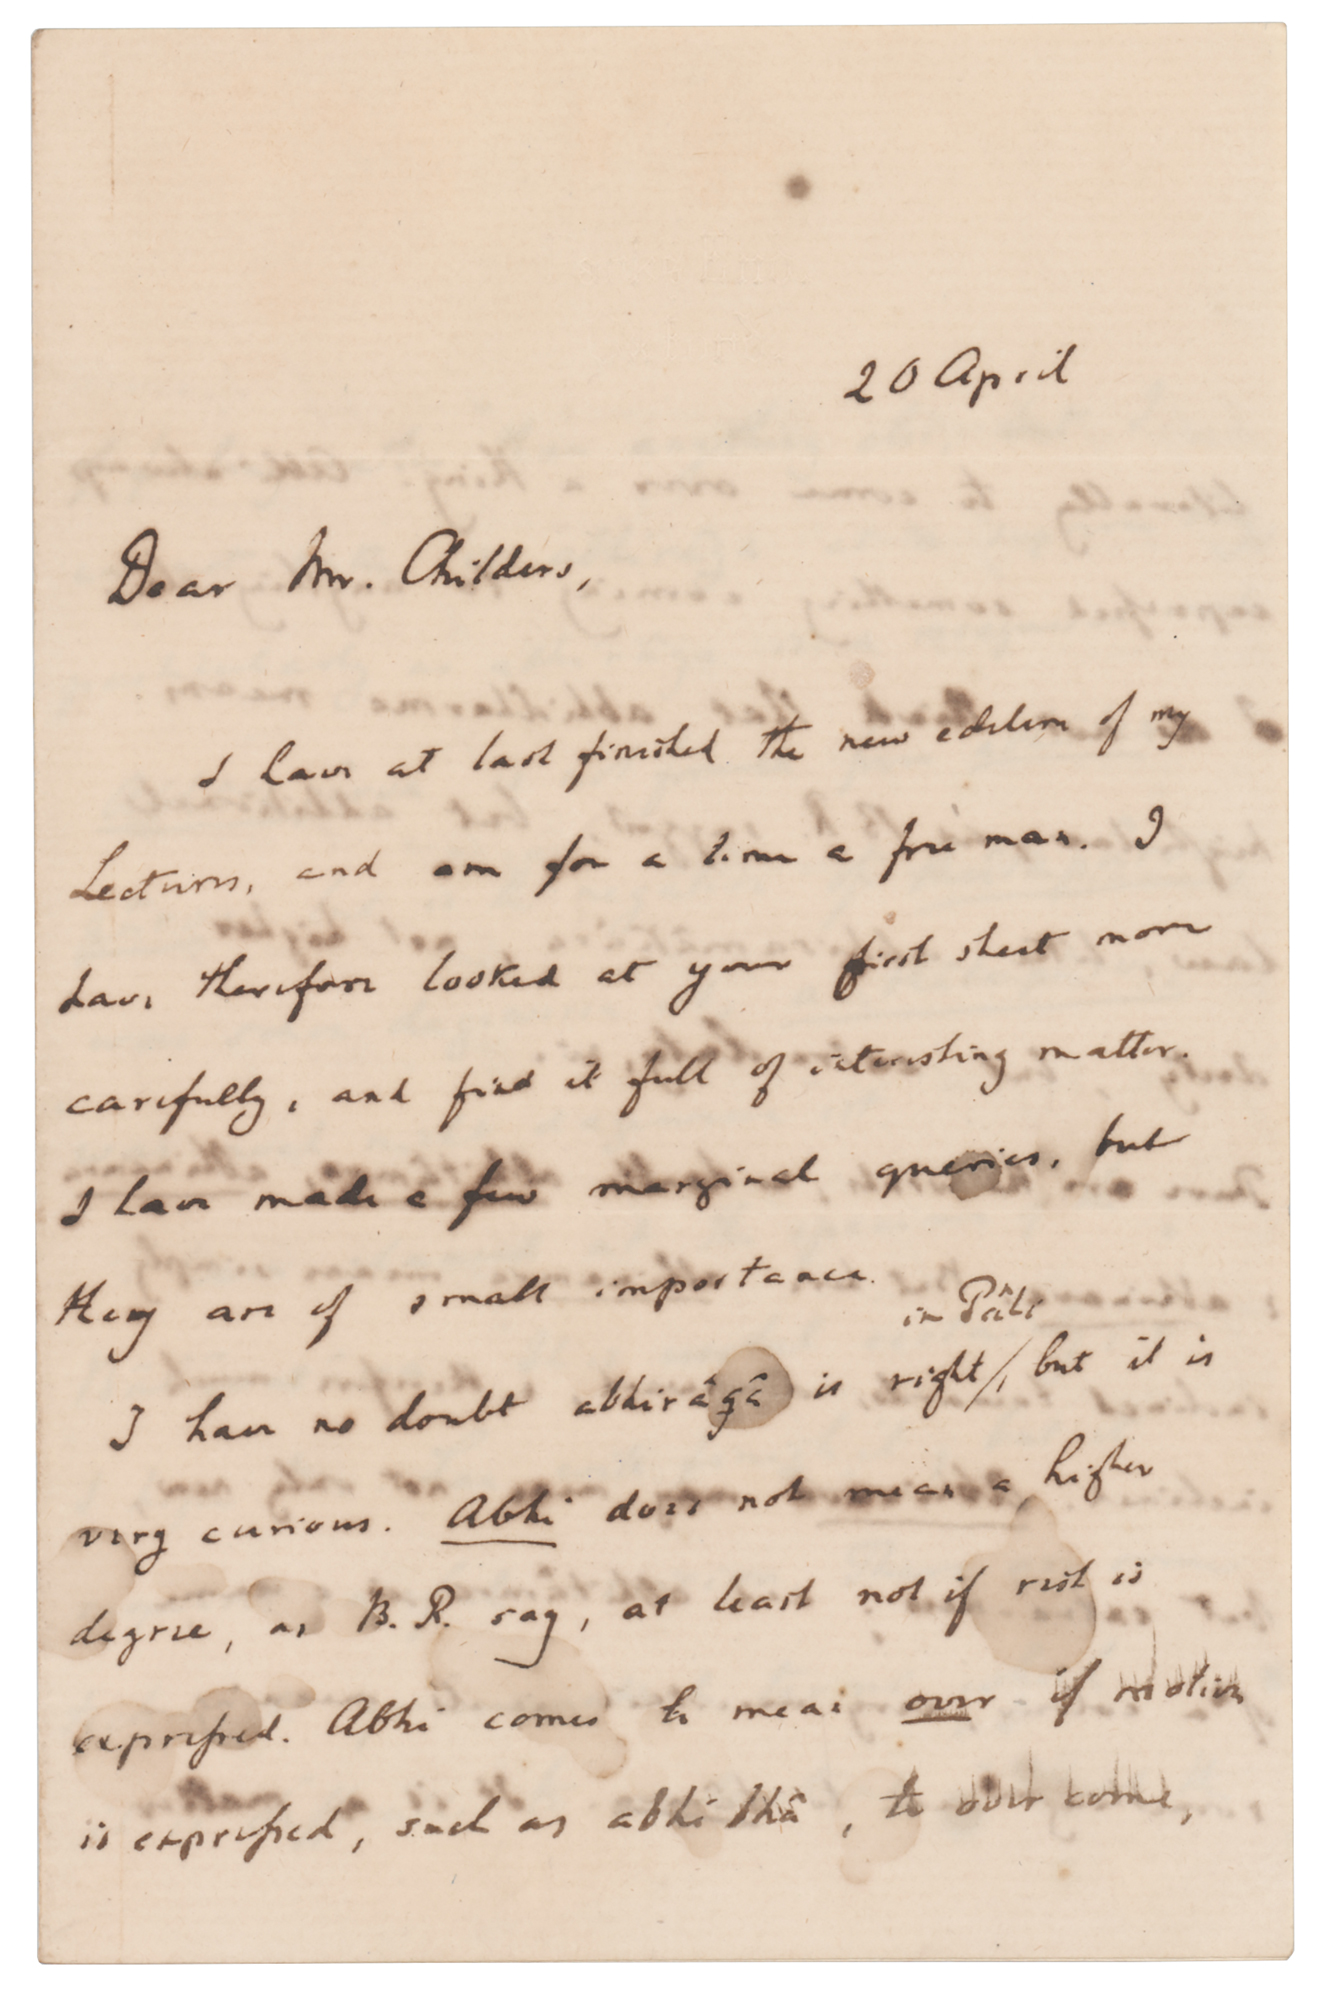 20 April
Dear Mr. Childers,
I have at last finished the new edition of my
Lectures, and am for a time a free man. I
have therefore looked at your first sheet more
carefully, and find it full of interesting matter.
I have made a few marginal queries, but
they are of small importance.
in Pâli
I have no doubt abhirâgâ is right/, but it is
very curious. Abhi does not mean a higher
degree, as B. R. say, at least not if rest is
expressed. Abhi comes to mean over if motion
is expressed, such as abhi bhâ, to over come,